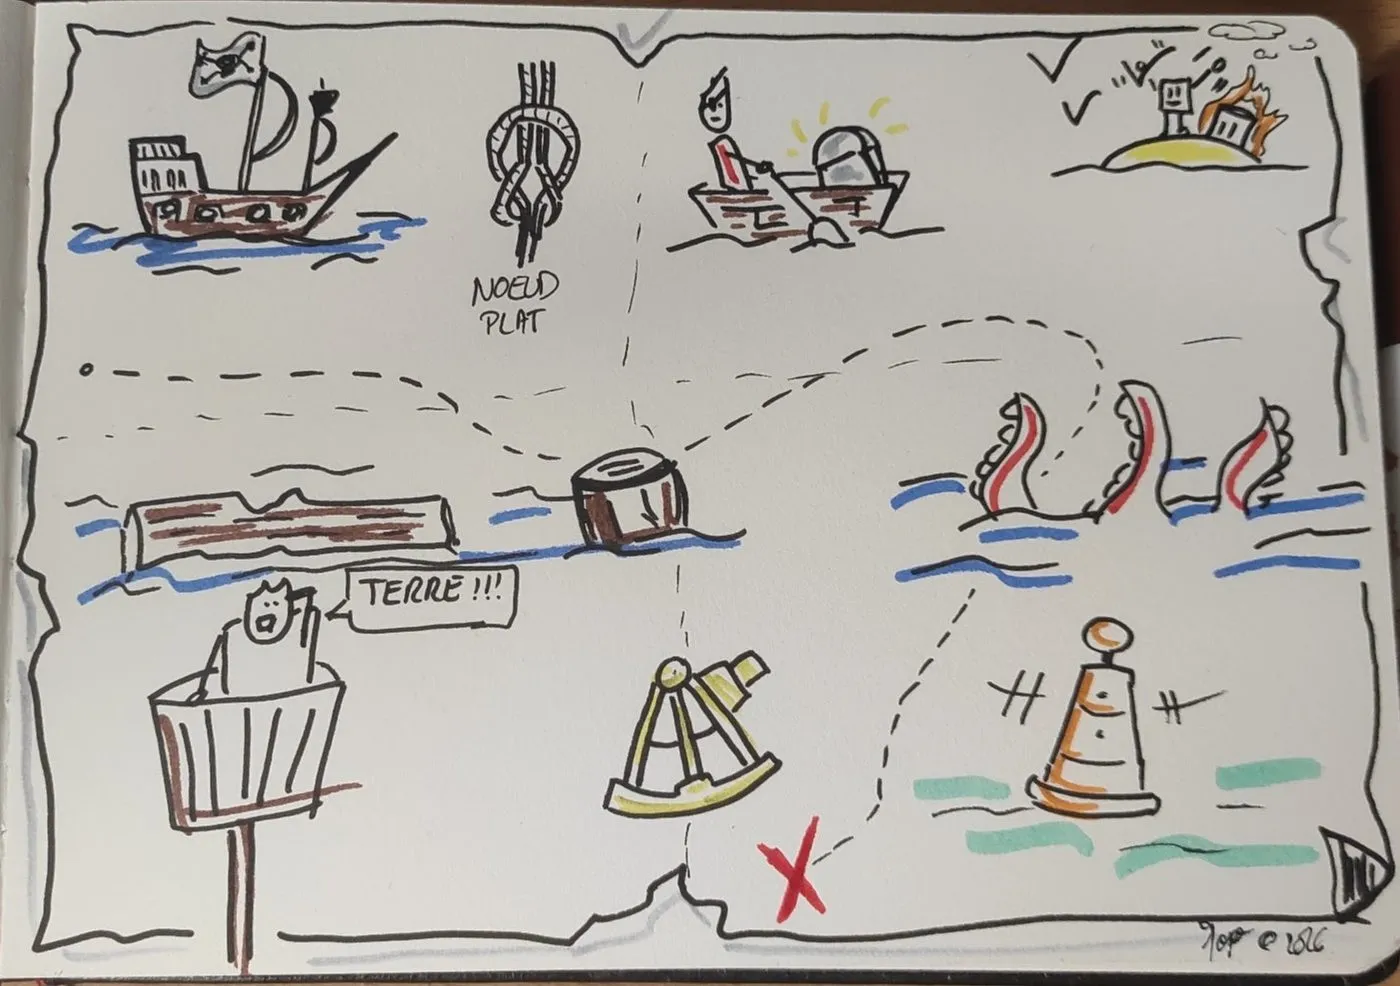 NOEUD
PLAT
TERRE !!!
© 2026